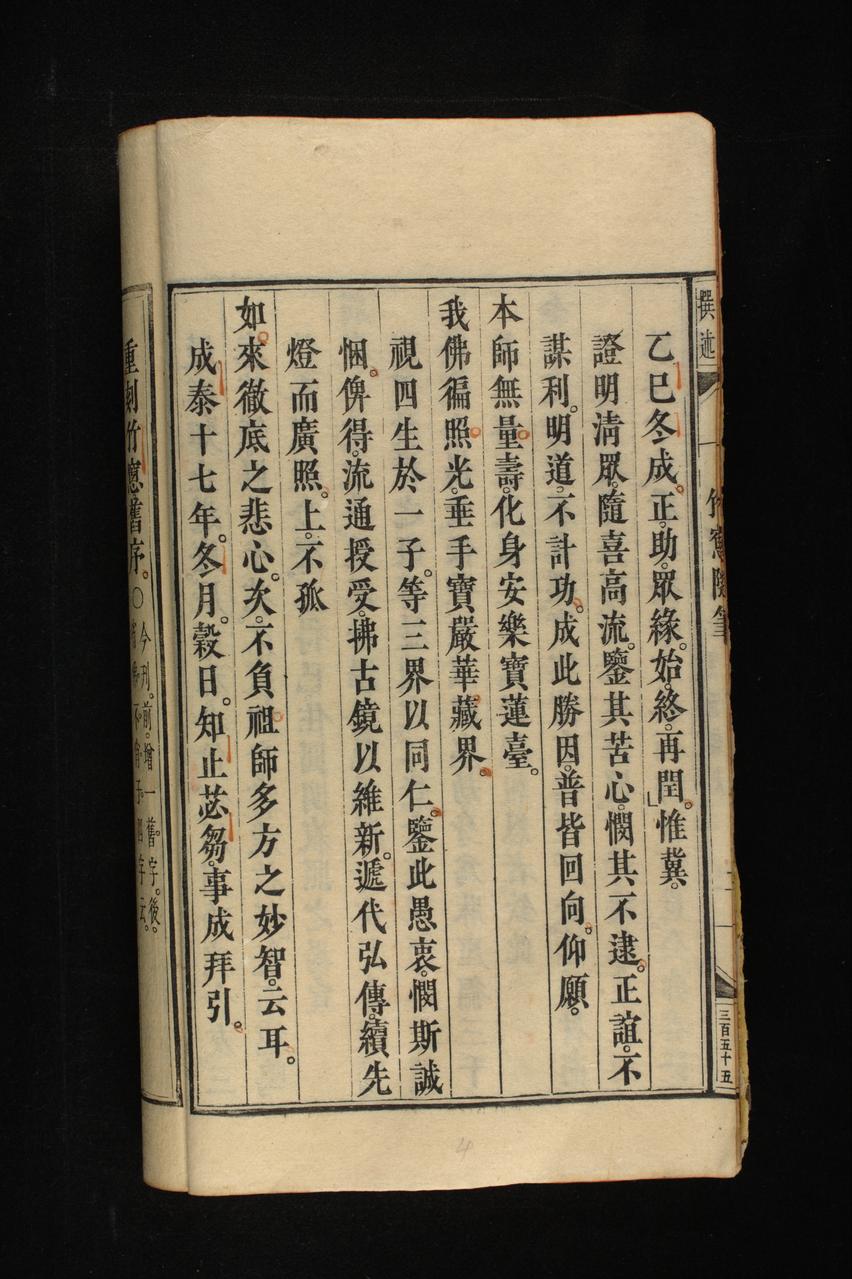 撰述
竹窻隨筆
三百五十五
乙巳冬成。正助。眾緣。始終。再閏。惟冀。
證明淸眾。隨喜高流。鑒其苦心。憫其不逮。正誼。不
謀利。明道。不計功。成此勝因。普皆回向。仰願。
本師無量壽。化身安樂寶蓮臺。
我佛徧照光。垂手寶嚴華藏界。
視四生於一子。等三界以同仁。鑒此愚衷。憫斯誠
悃。俾得。流通授受。拂古鏡以維新。遞代弘傳。續先
燈而廣照。上。不孤
如來徹底之悲心。次。不負祖師多方之妙智。云耳。
成泰十七年。冬月。穀日。知止苾芻。事成拜引。
重刻竹窻舊序。○
今刋。前。增一舊字。後。